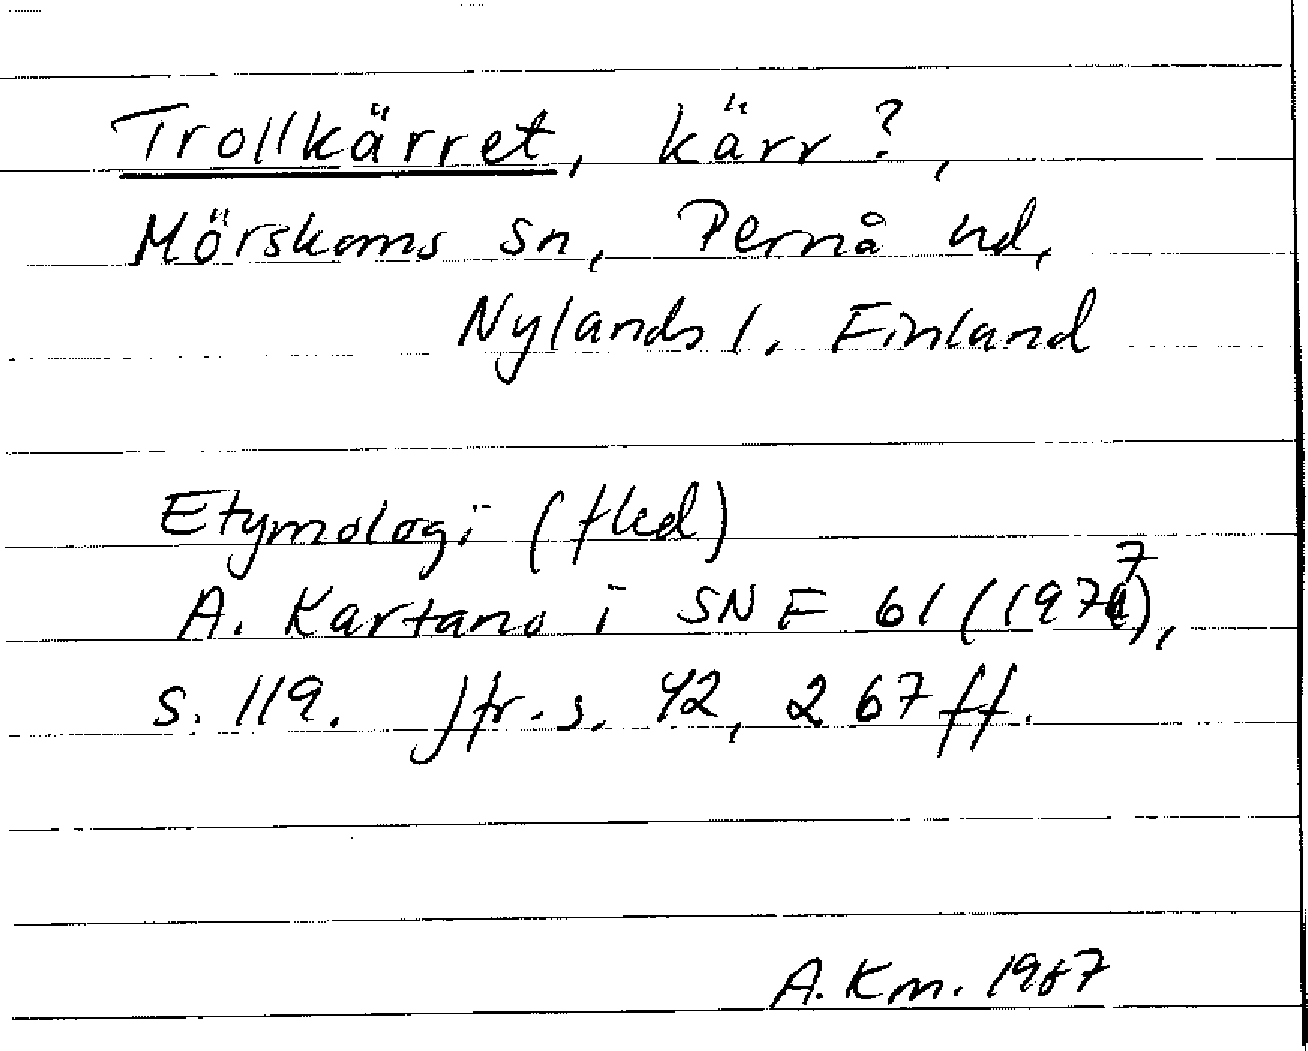 Trollkärret, kärr?,
Mörskoms sn, Pernå hd,
Nylands l. Finland
Etymologi (fled)
A. Kartano i SNF 61 (1977),
s. 119. Jfr. s. 42, 267 ff.
A. Km. 1987